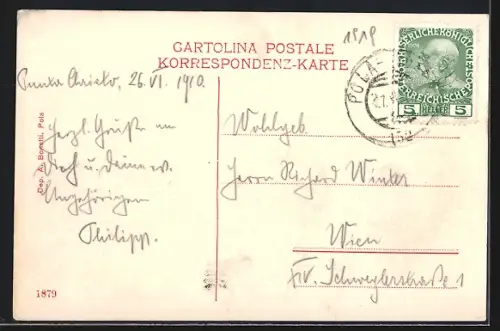 1919
CARTOLINA POSTALE
KORRESPONDENZ-KARTE
KAISERLICHE KÖNIGLICHE
ÖSTERREICHISCHE POST
5 HELLER 5
POLA
Punta Christo, 26. VI. 1910.
Herzl. Grüße an
Dich u. Deine w.
Angehörigen
Philipp.
Wohlgeb.
Herrn Richard Winter
Wien
XV. Schweglerstraße 1
Dep. A. Bonetti, Pola
1879